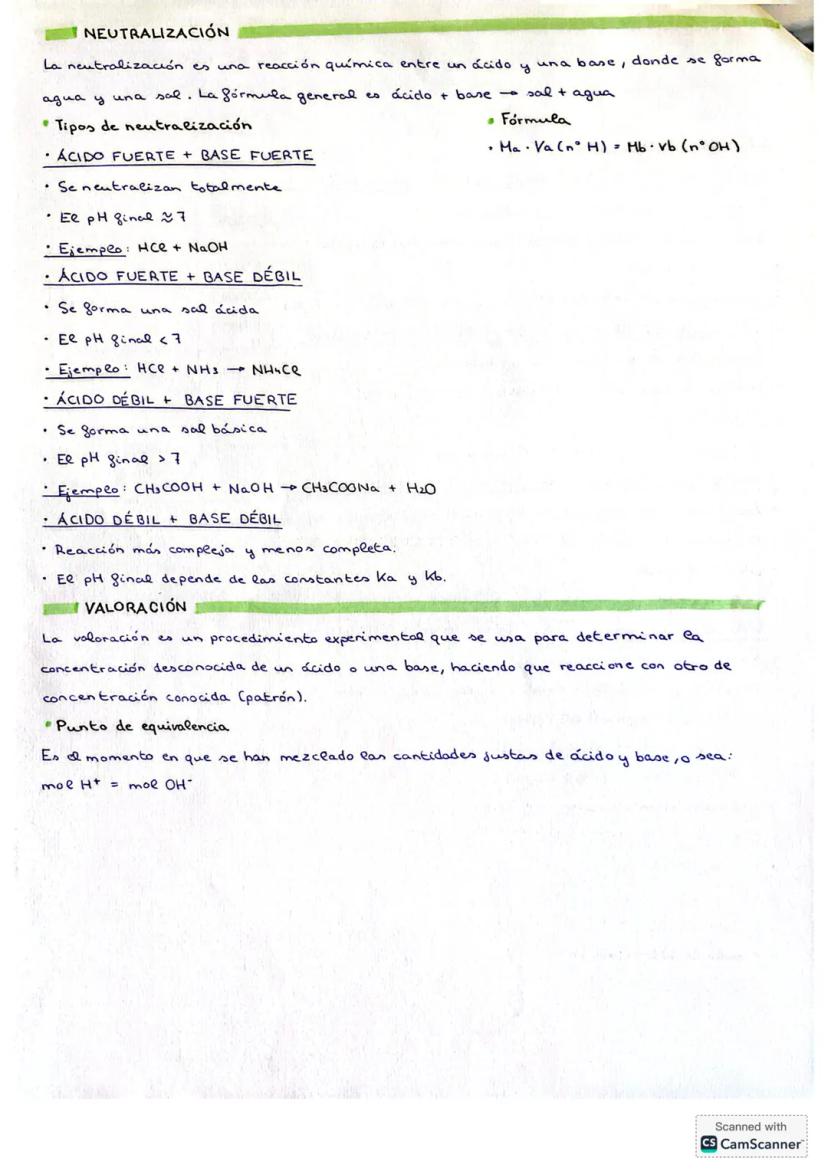 NEUTRALIZACIÓN
La neutralización es una reacción química entre un ácido y una base, donde se forma
agua y una sal. La fórmula general es ácido + base → sal + agua
• Tipos de neutralización
• Fórmula
• Ma · Va (nº H) = Mb · Vb (nº OH)
• ÁCIDO FUERTE + BASE FUERTE
• Se neutralizan totalmente
• El pH final ≈ 7
• Ejemplo: HCl + NaOH
• ÁCIDO FUERTE + BASE DÉBIL
• Se forma una sal ácida
• El pH final < 7
• Ejemplo: HCl + NH3 → NH4Cl
• ÁCIDO DÉBIL + BASE FUERTE
• Se forma una sal básica
• El pH final > 7
• Ejemplo: CH3COOH + NaOH → CH3COONa + H2O
• ÁCIDO DÉBIL + BASE DÉBIL
• Reacción más compleja y menos completa.
• El pH final depende de las constantes Ka y Kb.
VALORACIÓN
La valoración es un procedimiento experimental que se usa para determinar la
concentración desconocida de un ácido o una base, haciendo que reaccione con otro de
concentración conocida (patrón).
• Punto de equivalencia
Es el momento en que se han mezclado las cantidades justas de ácido y base, o sea:
mol H⁺ = mol OH⁻
Scanned with
CS CamScanner